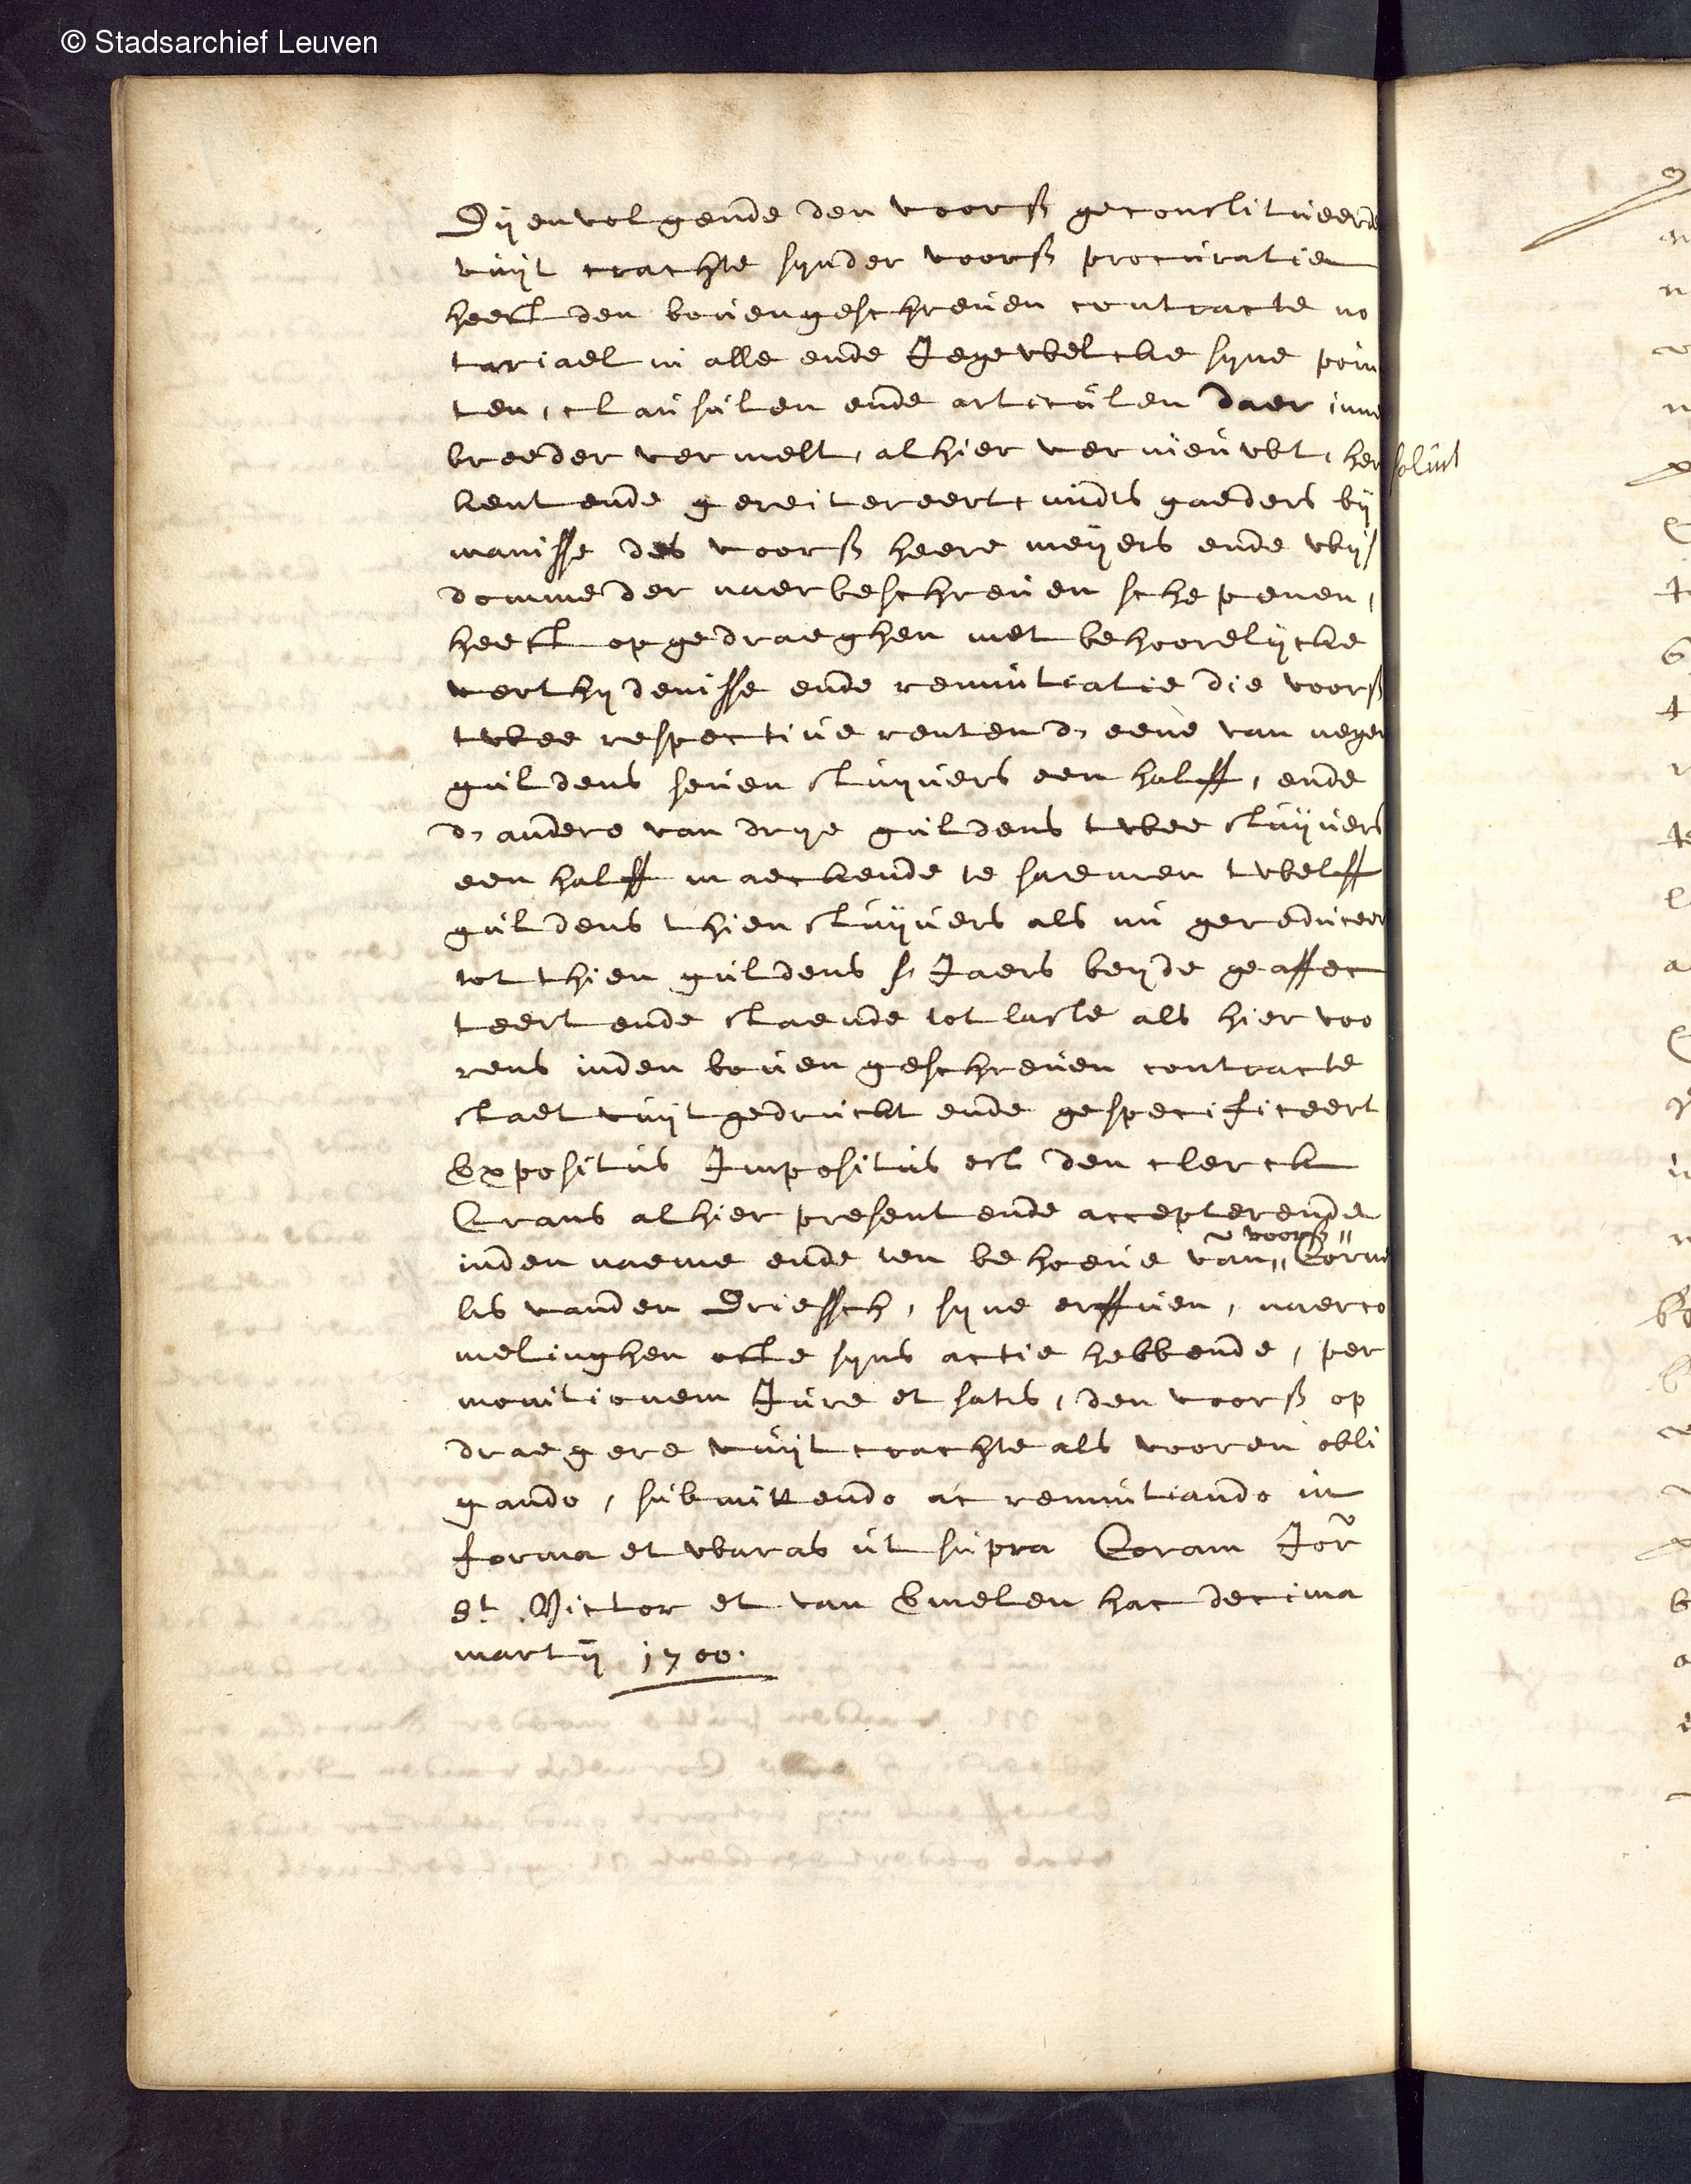 © Stadsarchief Leuven
Dyenvolgende den voorß geconstitueerde
vuijt crachte synder voorß procuratien
heeft den bouengeschreuen contracte no
tariael in alle ende Iegewelcke syne poin
ten, clausulen ende articulen daer inne
breeder vermelt, alhier vernieuwt, her
kent ende gereitereert, midts gaeders bij
manisse des voorß heere meyers ende wijs
domme der naerbeschreuen schepenen,
heeft opgedraeghen met behoorelijcke
verthydenisse ende renuntiatie die voorß
twee respectiue renten d'eene van negen
guldens seuen stuyuers een halff, ende
d'andere van drye guldens twee stuijuers
een halff maeckende te saemen twelff
guldens thien stuijuers als nu gereduceert
tot thien guldens s'Iaers beyde geaffec
teert ende staende tot laste als hier voo
rens inden bouen geschreuen contracte
staet vuijtgedruckt ende gespecificeert
Expositus Impositus est den clerck
Crans alhier present ende accepterende
voorß
inden naeme ende ten behoeue van Corne
lis vanden Driessch, syne erffuen, naerco
melinghen ofte syns actie hebbende, per
monitionem Iure et satis, den voorß op
draegere vuijt crachte als vooren obli
gando, submittendo ac renuntiando in
forma et waras ut supra Coram Ior
St. Victor et van Emelen hac decima
martij 1700.